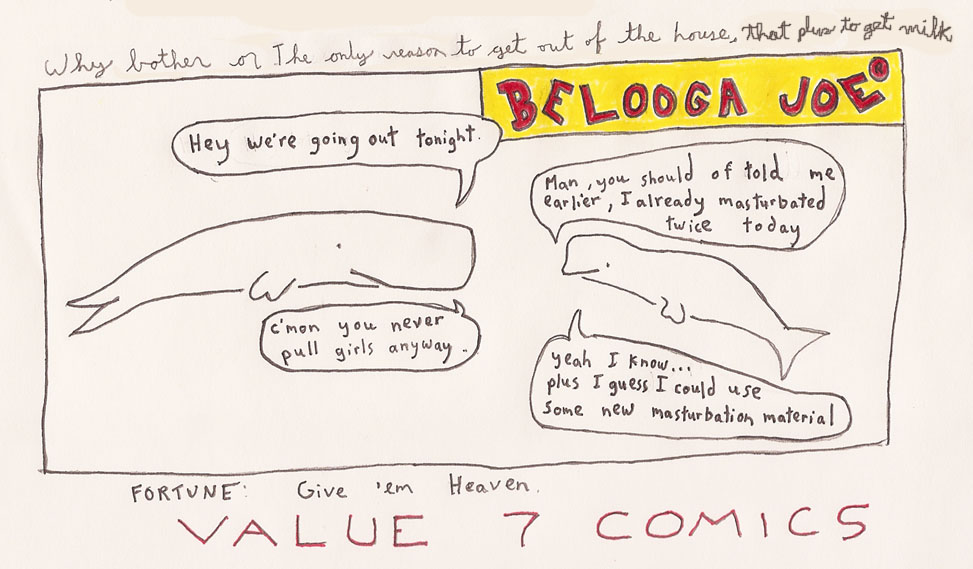 Why bother or The only reason to get out of the house, that plus to get milk
BELOOGA JOE®
Hey we're going out tonight.
Man, you should of told me
earlier, I already masturbated
twice today
c'mon you never
pull girls anyway.
yeah I know...
plus I guess I could use
some new masturbation material
FORTUNE: Give 'em Heaven.
VALUE 7 COMICS